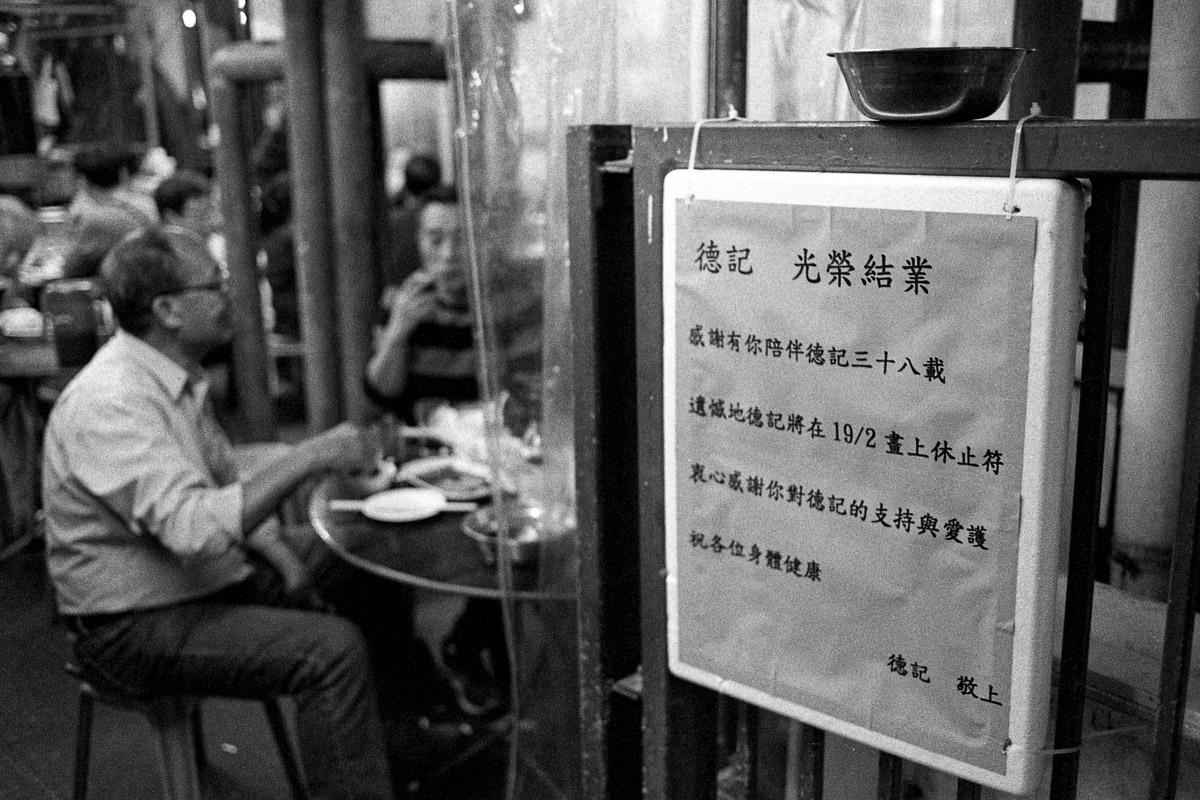 德記 光榮結業
感謝有你陪伴德記三十八載
遺憾地德記將在 19/2 畫上休止符
衷心感謝你對德記的支持與愛護
祝各位身體健康
德記 敬上